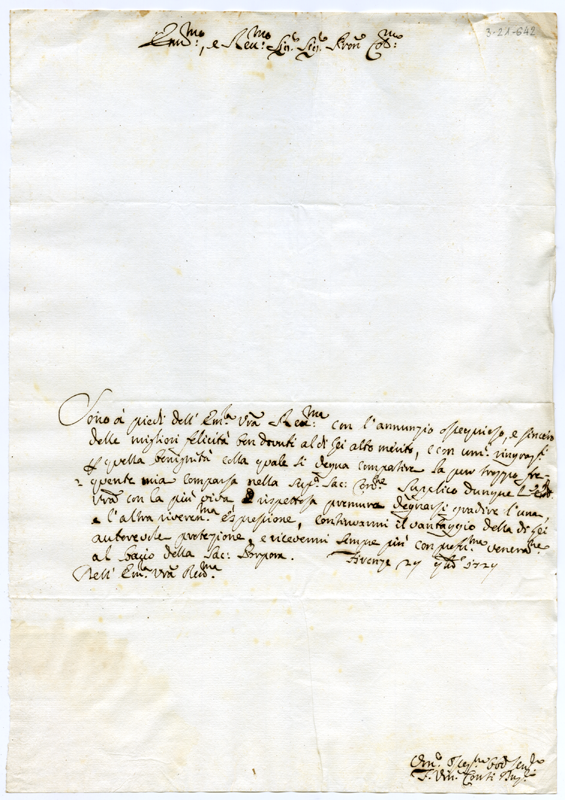 Em:mo, e Reu:mo Sig:r Sig:r Pron Col:mo
3-21-642
Sono à piedi dell' Em:za Vra Reu:ma con l'annunzio ossequioso, e sincero
delle migliori felicità ben dovuti al di lei alto merito, e con um:
quella benignità colla quale si degna compatire la pur troppo fre
quente mia comparsa nella Sup:a Sac: Supplico dunque
Vra con la più viva e rispettosa premura degnarsi gradire l'una
e l'altra riveren:ma espresione, continuarmi il vantaggio della di lei
autorevole protezione, e ricevermi sempre più con
al bacio della Sac: Porpora. Firenze 29 1729
Dell' Em:za Vra Reu:ma
Um:o
F. Vin: Conti